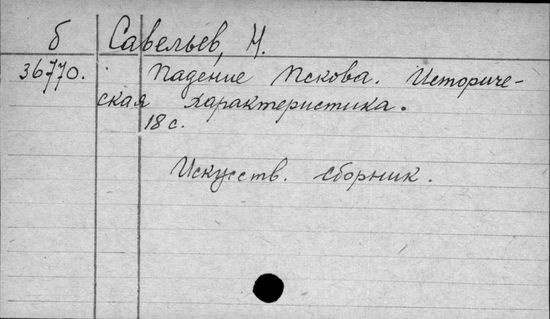 б Савельев, Н.
36770. Падение Пскова. Историче-
ская характеристика.
18 с.
Искусств. сборник.